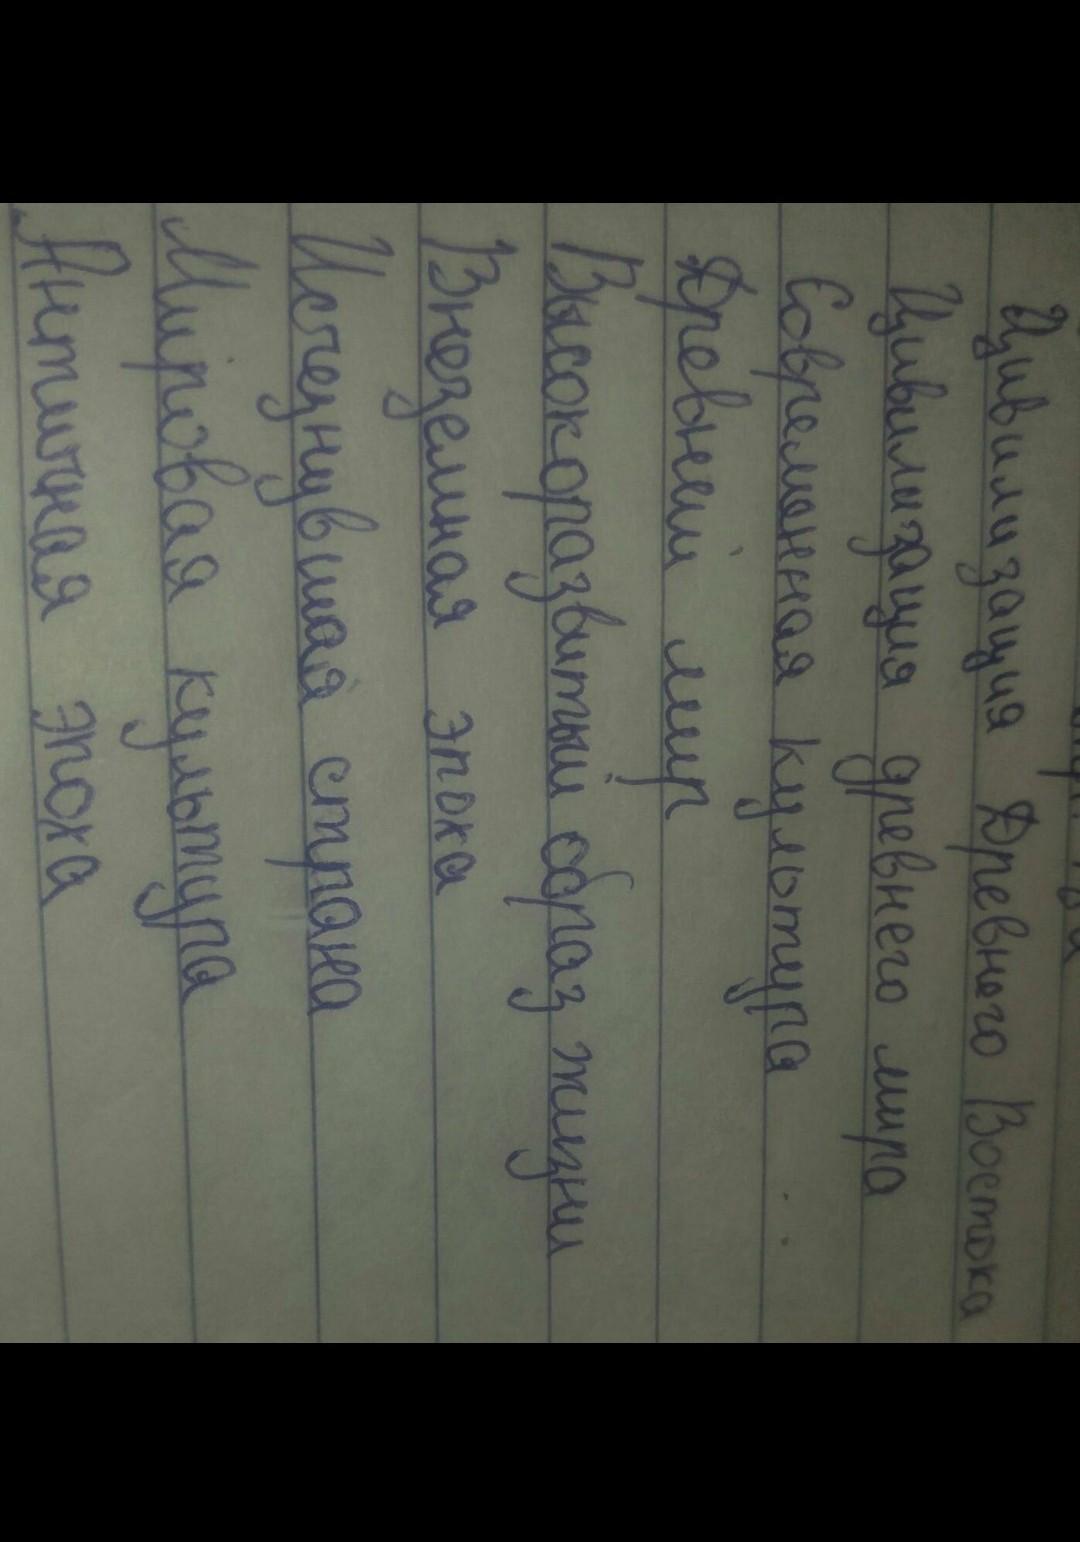 Цивилизация Древнего Востока
Цивилизация древнего мира
Современная культура
Древней мир
Высокоразвитый образ жизни
Внеземная эпоха
Исчезнувшая страна
Мировая культура
Античная эпоха